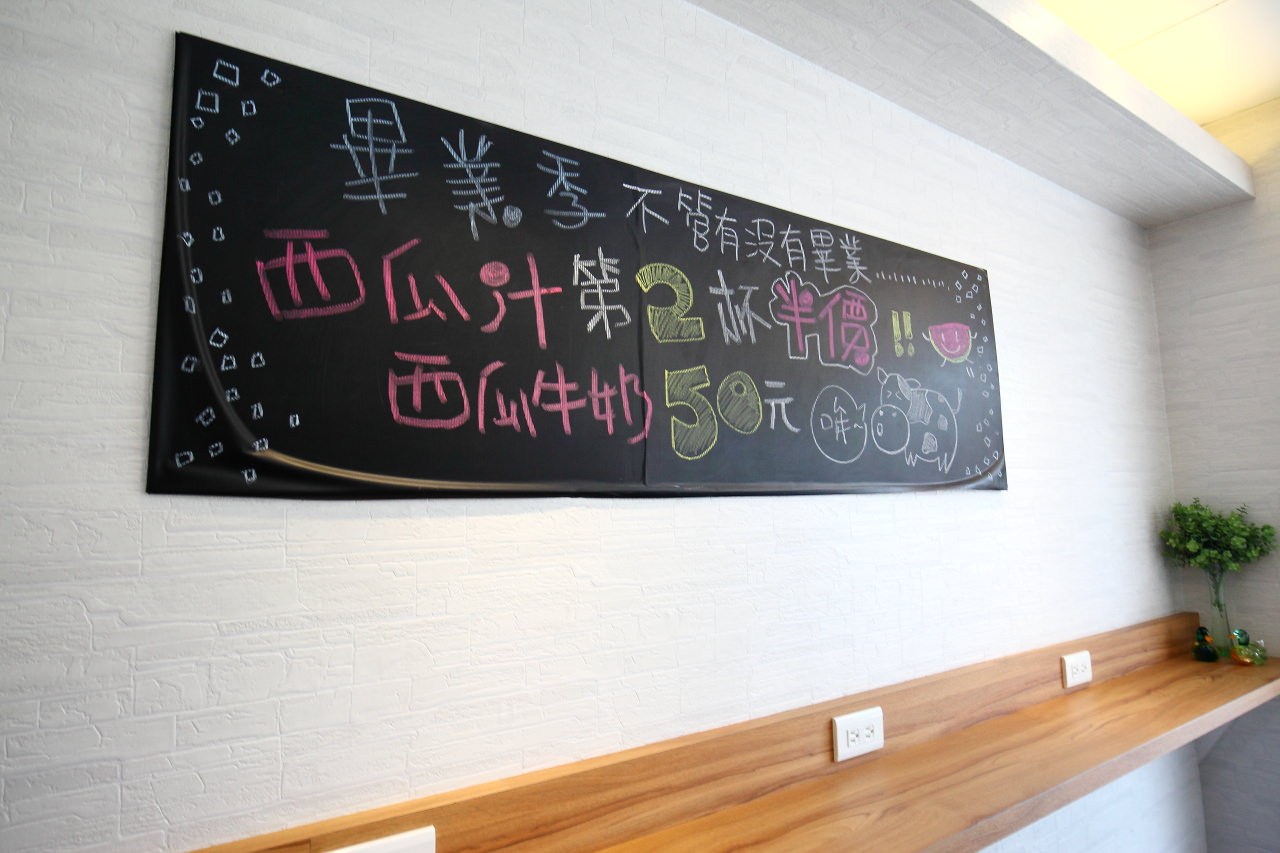 畢業季 不管有沒有畢業........
西瓜汁第2杯半價!!
西瓜牛奶50元 哞~